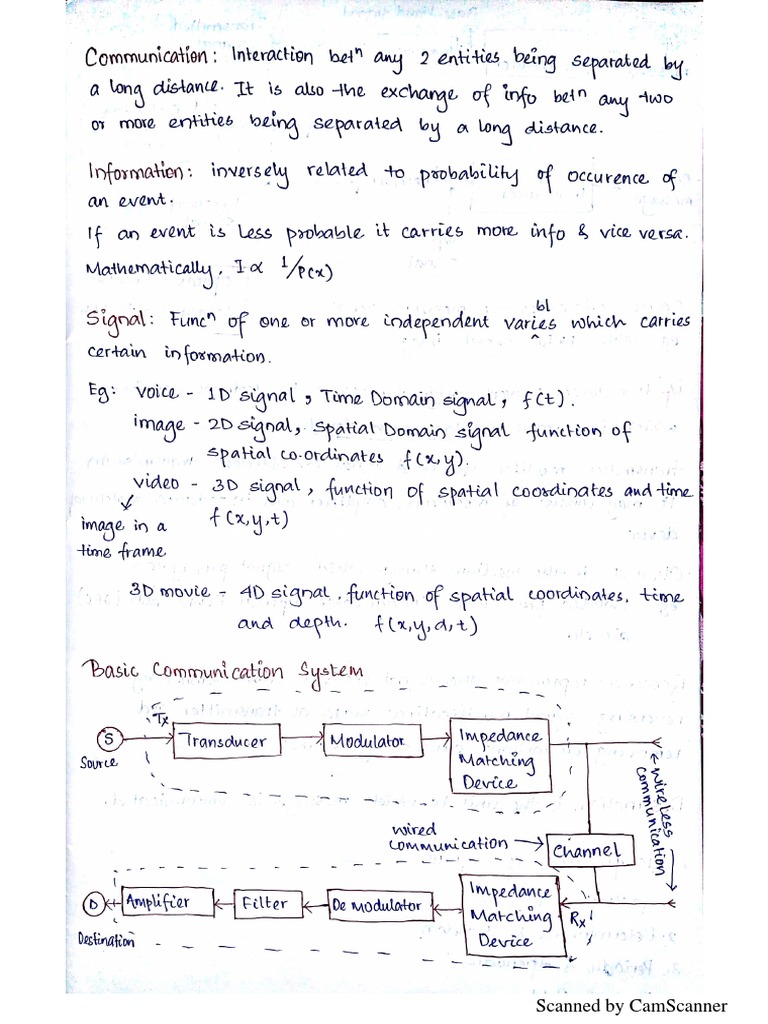 Communication: Interaction betⁿ any 2 entities being separated by
a long distance. It is also the exchange of info betⁿ any two
or more entities being separated by a long distance.
Information: inversely related to probability of occurence of
an event.
If an event is less probable it carries more info & vice versa.
Mathematically, I ∝ 1/P(x)
Signal: Funcⁿ of one or more independent varibles which carries
certain information.
Eg: voice - 1D signal, Time Domain signal, f(t).
image - 2D signal, Spatial Domain signal function of
spatial co-ordinates f(x,y).
video - 3D signal, function of spatial coordinates and time
f(x,y,t)
image in a
time frame
3D movie - 4D signal, function of spatial coordinates, time
and depth. f(x,y,d,t)
Basic Communication System
Tx
S
Source
Transducer
Modulator
Impedance
Matching
Device
wireless
communication
wired
communication
Channel
D
Destination
Amplifier
Filter
De Modulator
Impedance
Matching
Device
Rx
Scanned by CamScanner